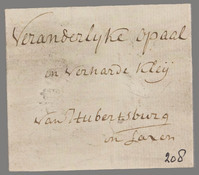 Veranderlyke opaal
in verharde Kleij
van Hubertsburg
in Saxen
208